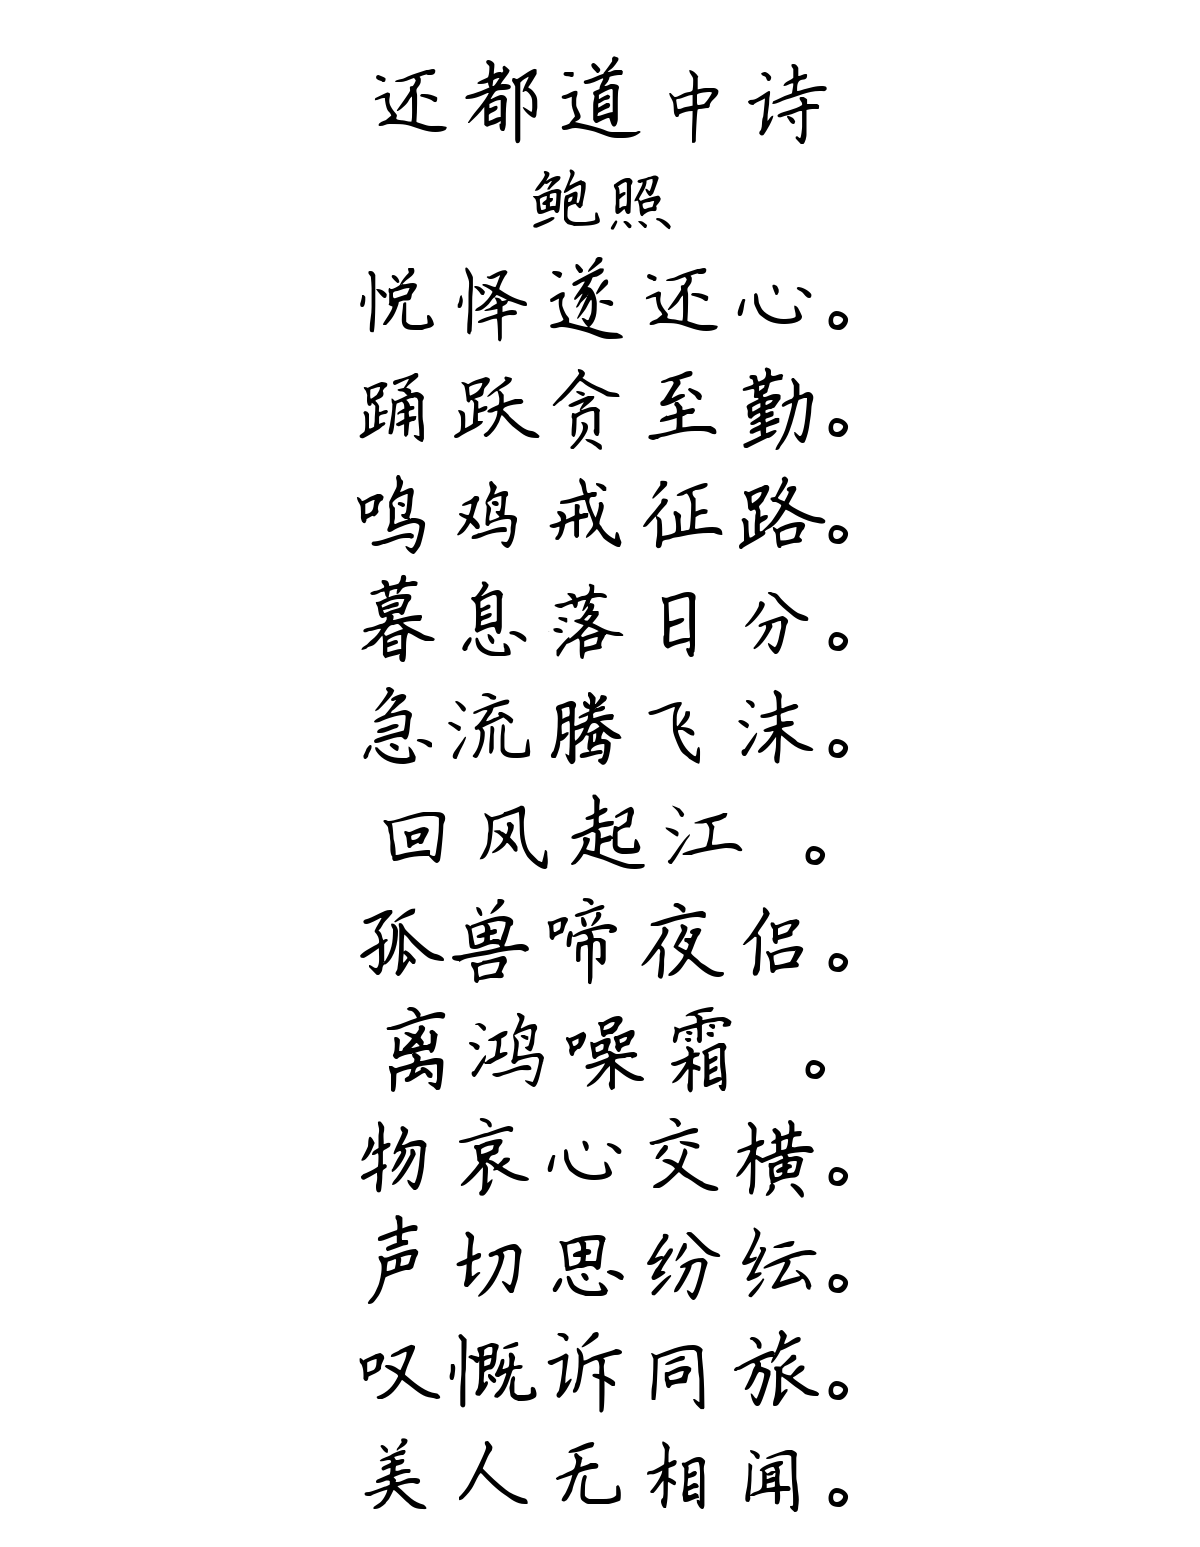 还都道中诗
鲍照
悦怿遂还心。
踊跃贪至勤。
鸣鸡戒征路。
暮息落日分。
急流腾飞沫。
回风起江 。
孤兽啼夜侣。
离鸿噪霜 。
物哀心交横。
声切思纷纭。
叹慨诉同旅。
美人无相闻。